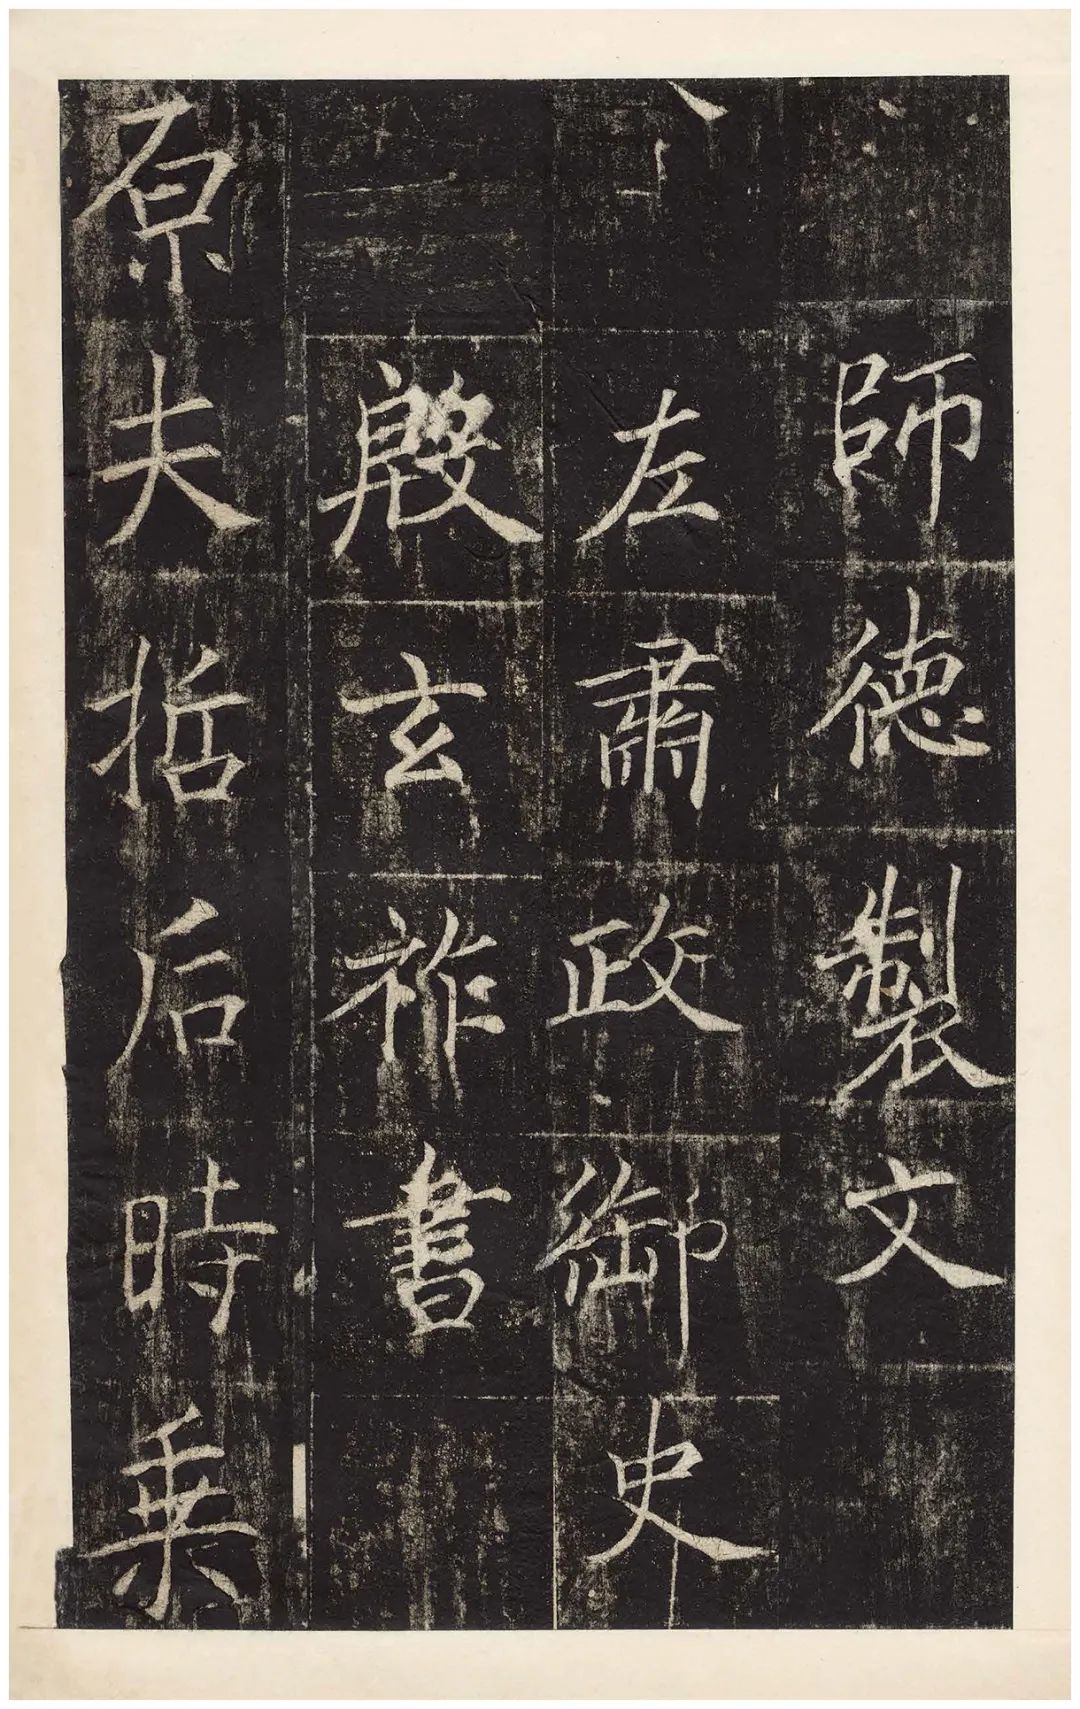 師德製文
左肅政御史
殷玄祚書
原夫哲后時乗